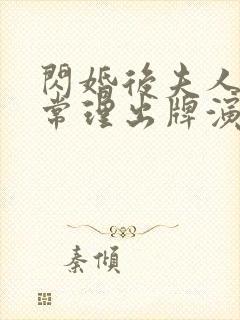 閃婚後夫人
常理出牌演
秦傾